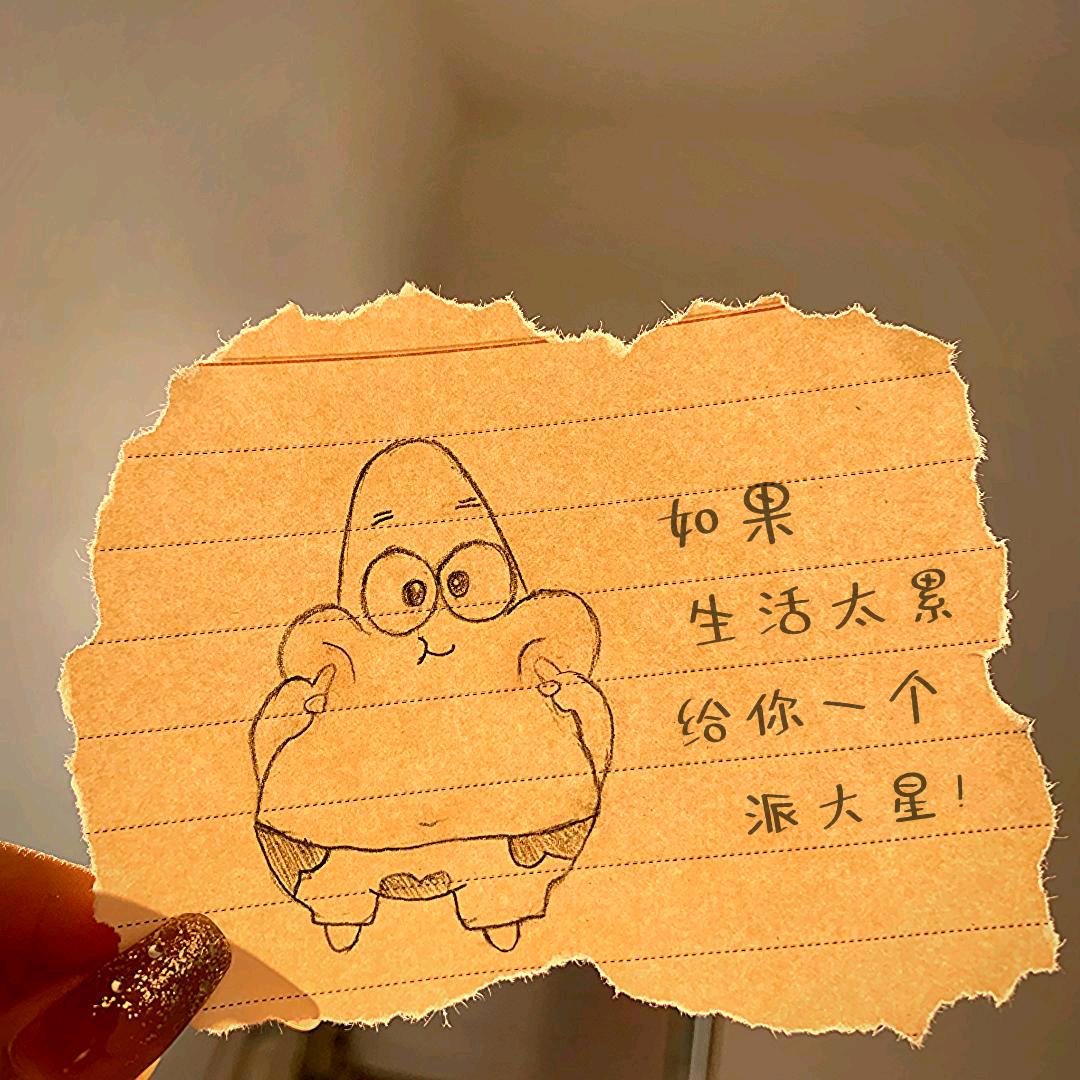 如果
生活太累
给你一个
派大星!